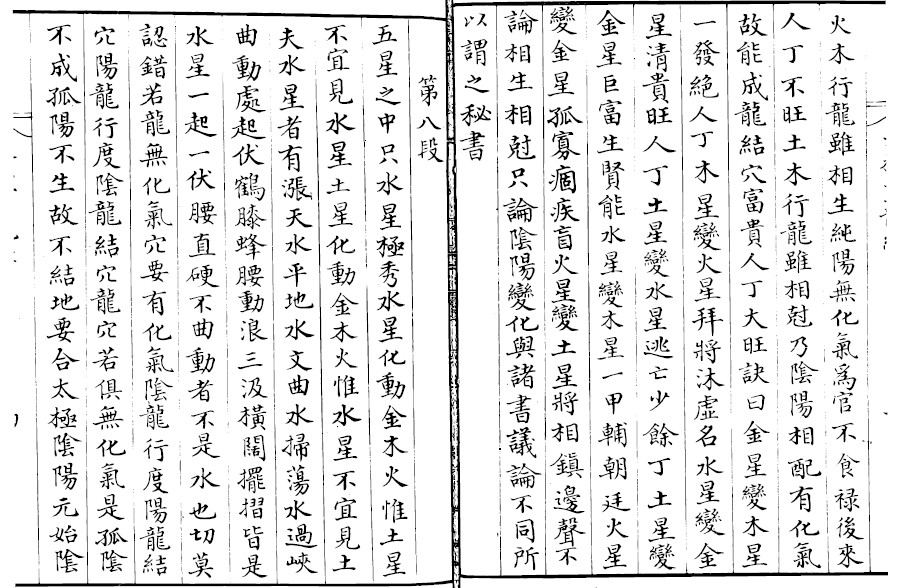 火木行龍雖相生純陽無化氣爲官不食祿後來
人丁不旺土木行龍雖相尅乃陰陽相配有化氣
故能成龍結穴富貴人丁大旺訣曰金星變木星
一發絕人丁木星變火星拜將沐虛名水星變金
星清貴旺人丁土星變水星逃亡少餘丁土星變
金星巨富生賢能水星變木星一甲輔朝廷火星
變金星孤寡痼疾盲火星變土星將相鎮邊聲不
論相生相尅只論陰陽變化與諸書議論不同所
以謂之秘書
第八段
五星之中只水星極秀水星化動金木火惟土星
不宜見水星土星化動金木火惟水星不宜見土
夫水星者有漲天水平地水文曲水掃蕩水過峽
曲動處起伏鶴膝蜂腰動浪三汲橫闊擺摺皆是
水星一起一伏腰直硬不曲動者不是水也切莫
認錯若龍無化氣穴要有化氣陰龍行度陽龍結
穴陽龍行度陰龍結穴龍穴若俱無化氣是孤陰
不成孤陽不生故不結地要合太極陰陽元始陰